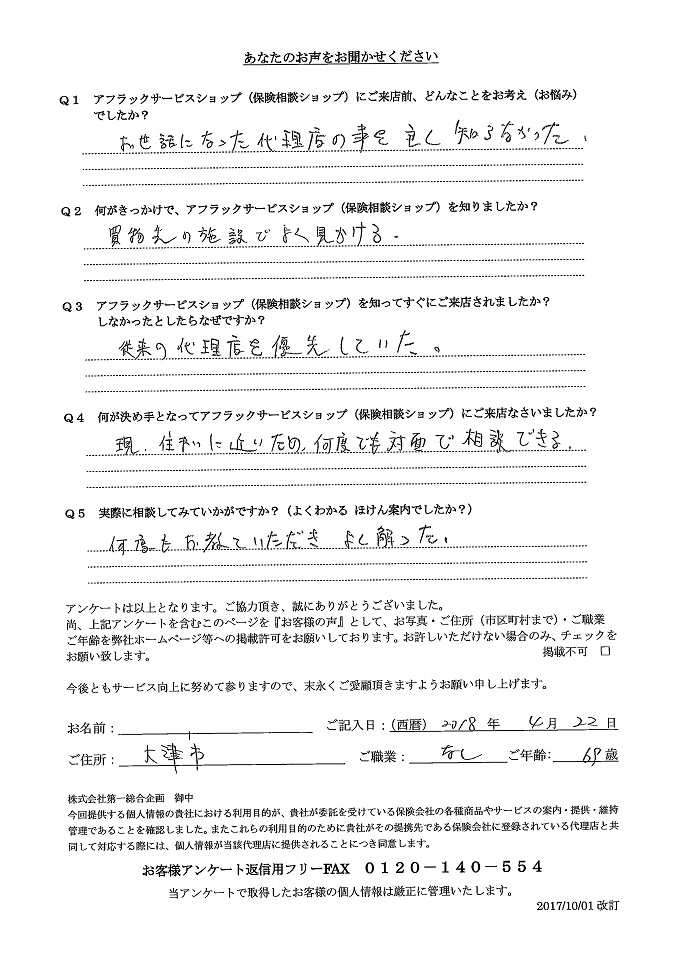 あなたのお声をお聞かせください
Q1 アフラックサービスショップ（保険相談ショップ）にご来店前、どんなことをお考え（お悩み）
でしたか？
お世話になった代理店の事を良く知らなかった。
Q2 何がきっかけで、アフラックサービスショップ（保険相談ショップ）を知りましたか？
買物先の施設でよく見かける。
Q3 アフラックサービスショップ（保険相談ショップ）を知ってすぐにご来店されましたか？
しなかったとしたらなぜですか？
従来の代理店を優先していた。
Q4 何が決め手となってアフラックサービスショップ（保険相談ショップ）にご来店なさいましたか？
現、住いに近いため、何度でも対面で相談できる。
Q5 実際に相談してみていかがですか？（よくわかる ほけん案内でしたか？）
何度もお教ていただき よく解った。
アンケートは以上となります。ご協力頂き、誠にありがとうございました。
尚、上記アンケートを含むこのページを『お客様の声』として、お写真・ご住所（市区町村まで）・ご職業
ご年齢を弊社ホームページ等への掲載許可をお願いしております。お許しいただけない場合のみ、チェックを
お願い致します。 掲載不可 □
今後ともサービス向上に努めて参りますので、末永くご愛顧頂きますようお願い申し上げます。
お名前： ご記入日：（西暦） 2018 年 4 月 22 日
ご住所： 大津市 ご職業： なし ご年齢： 69 歳
株式会社第一総合企画 御中
今回提供する個人情報の貴社における利用目的が、貴社が委託を受けている保険会社の各種商品やサービスの案内・提供・維持
管理であることを確認しました。またこれらの利用目的のために貴社がその提携先である保険会社に登録されている代理店と共
同して対応する際には、個人情報が当該代理店に提供されることにつき同意します。
お客様アンケート返信用フリーFAX 0120－140－554
当アンケートで取得したお客様の個人情報は厳正に管理いたします。
2017/10/01 改訂